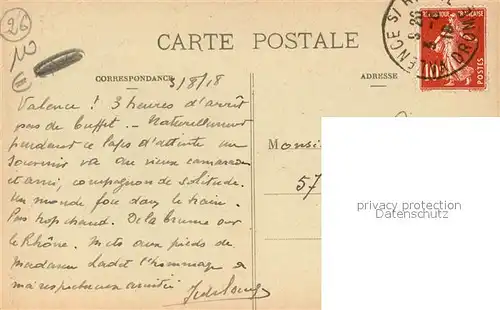 26
CARTE POSTALE
RÉPUBLIQUE FRANÇAISE
10c
POSTES
VALENCE S. RHÔNE
DRÔME
CORRESPONDANCE
ADRESSE
3/8/18
Valence ! 3 heures d'arrêt
pas de buffet — Naturellement
pendant ce laps d'attente un
souvenir va au vieux camarade
et ami, compagnon de solitude.
Un monde fou dans le train.
Pas trop chaud. De la brume sur
le Rhône. Mets aux pieds de
Madame l'hommage de
ma respectueuse amitié
Monsie
57
privacy protection
Datenschutz